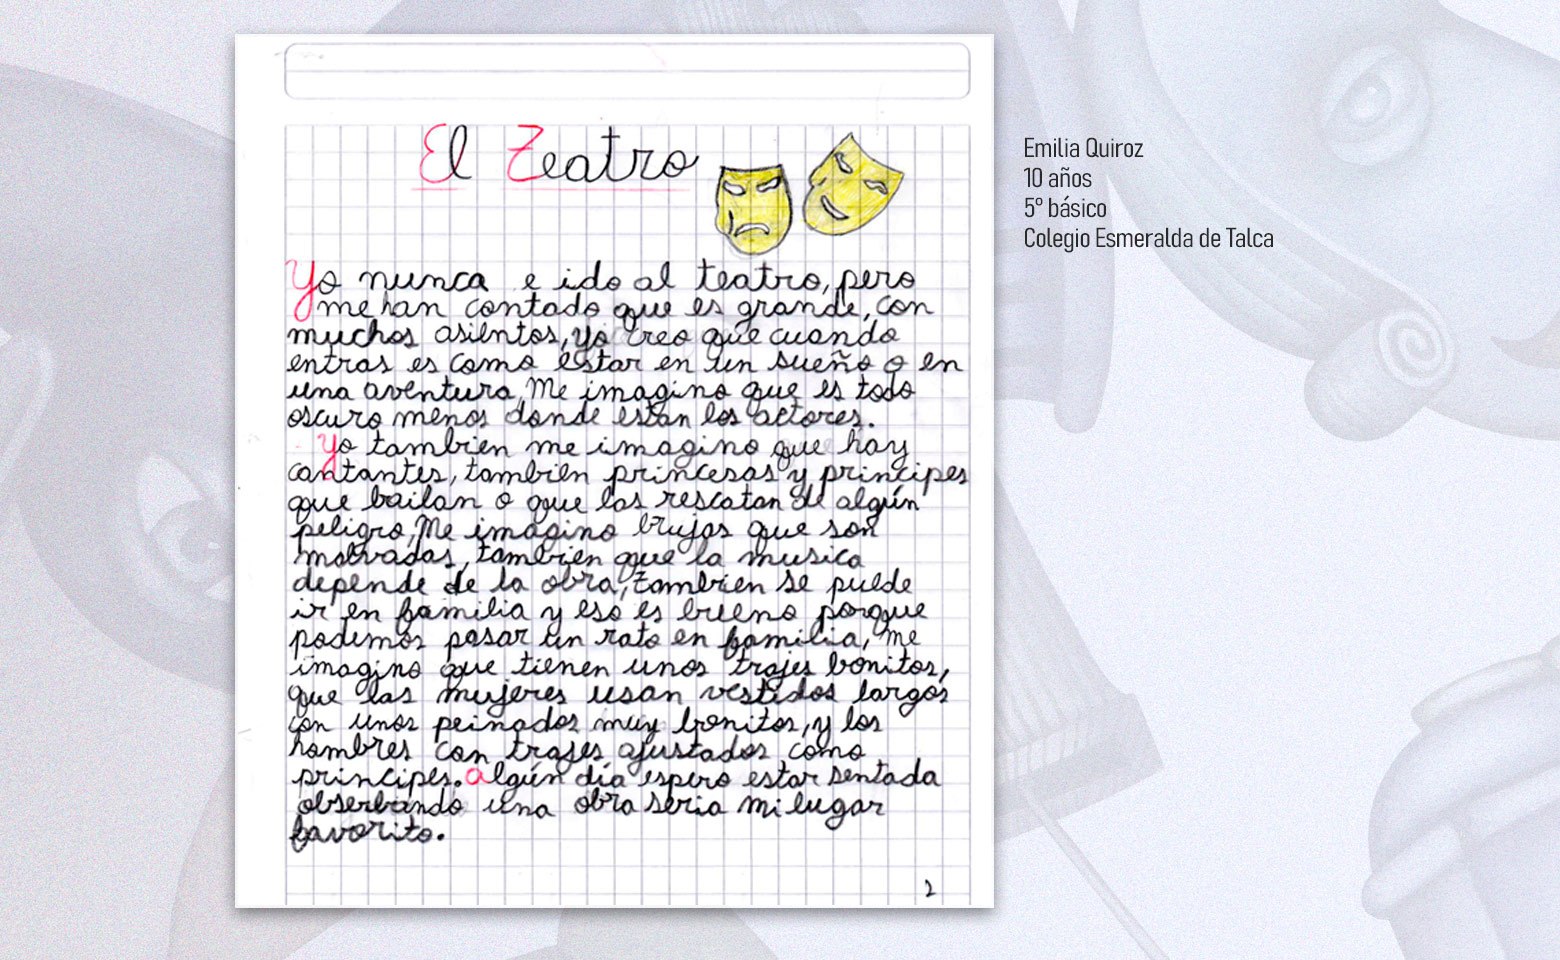 El Teatro
Yo nunca e ido al teatro, pero
me han contado que es grande, con
muchos asientos, yo creo que cuando
entras es como estar en un sueño o en
una aventura, Me imagino que es todo
oscuro menos donde estan los actores.
Yo tambien me imagino que hay
cantantes, tambien princesas y principes
que bailan o que las rescatan de algún
peligro, Me imagino brujas que son
malvadas, tambien que la musica
depende de la obra, tambien se puede
ir en familia y eso es bueno porque
podemos pasar un rato en familia, me
imagino que tienen unos trajes bonitos,
que las mujeres usan vestidos largos
con unos peinados muy bonitos, y los
hombres con trajes ajustados como
principes. Algún día espero estar sentada
obserbando una obra seria mi lugar
favorito.
2
Emilia Quiroz
10 años
5° básico
Colegio Esmeralda de Talca